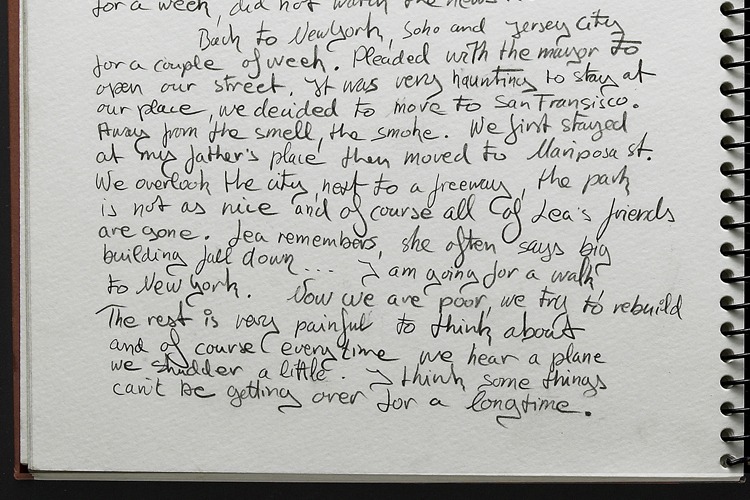 for a week, did not watch the news
Back to NewYork, Soho and Jersey City
for a couple of week. Pleaded with the mayor to
open our street. It was very haunting to stay at
our place, we decided to move to San Fransisco.
Away from the smell, the smoke. We first stayed
at my father's place then moved to Mariposa st.
We overlook the city, next to a freeway, the park
is not as nice and of course all of Lea's friends
are gone. Lea remembers, she often says big
building fall down... I am going for a walk
to New York. Now we are poor, we try to rebuild
The rest is very painful to think about
and of course everytime we hear a plane
we shudder a little. I think some things
can't be getting over for a longtime.